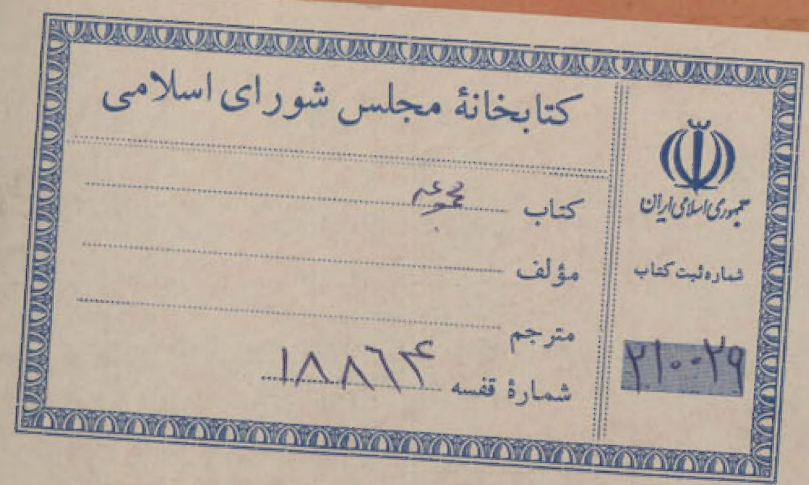 کتابخانهٔ مجلس شورای اسلامی
کتاب مجموعه
مؤلف
مترجم
شمارهٔ قفسه ۱۸۸۶۴
جمهوری اسلامی ایران
شماره ثبت کتاب
۲۱۰۰۲۹